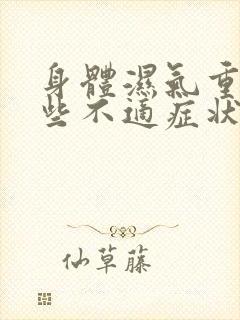 身體濕氣重
些不適症狀
仙草藤